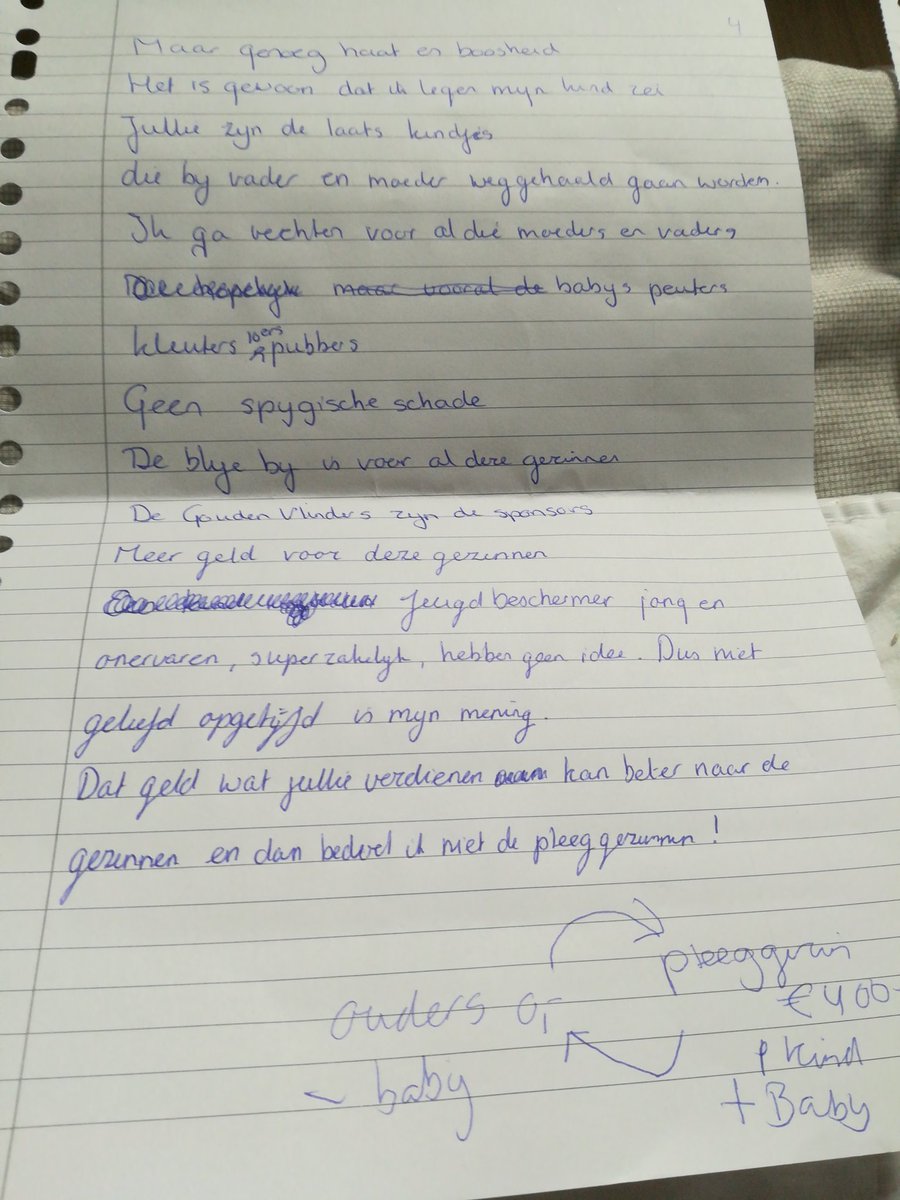 4
Maar genoeg haat en boosheid
Het is gewoon dat ik tegen mijn kind zei
Jullie zijn de laats kindjes
die by vader en moeder weggehaald gaan worden.
Ik ga vechten voor al die moeders en vaders
maar vooral de babys peuters
kleuters 10ers pubbers
Geen spygische schade
De blije by is voor al deze gezinnen
De Gouden Vlinders zijn de sponsors
Meer geld voor deze gezinnen
Jeugdbeschermer jong en
onervaren, superzakelijk, hebben geen idee. Dus niet
geliefd opgetijfd is mijn mening.
Dat geld wat jullie verdienen kan beter naar de
gezinnen en dan bedoel ik niet de pleeggezinnen!
pleeggezin
€400-
ouders 0,-
p kind
- baby
+ Baby